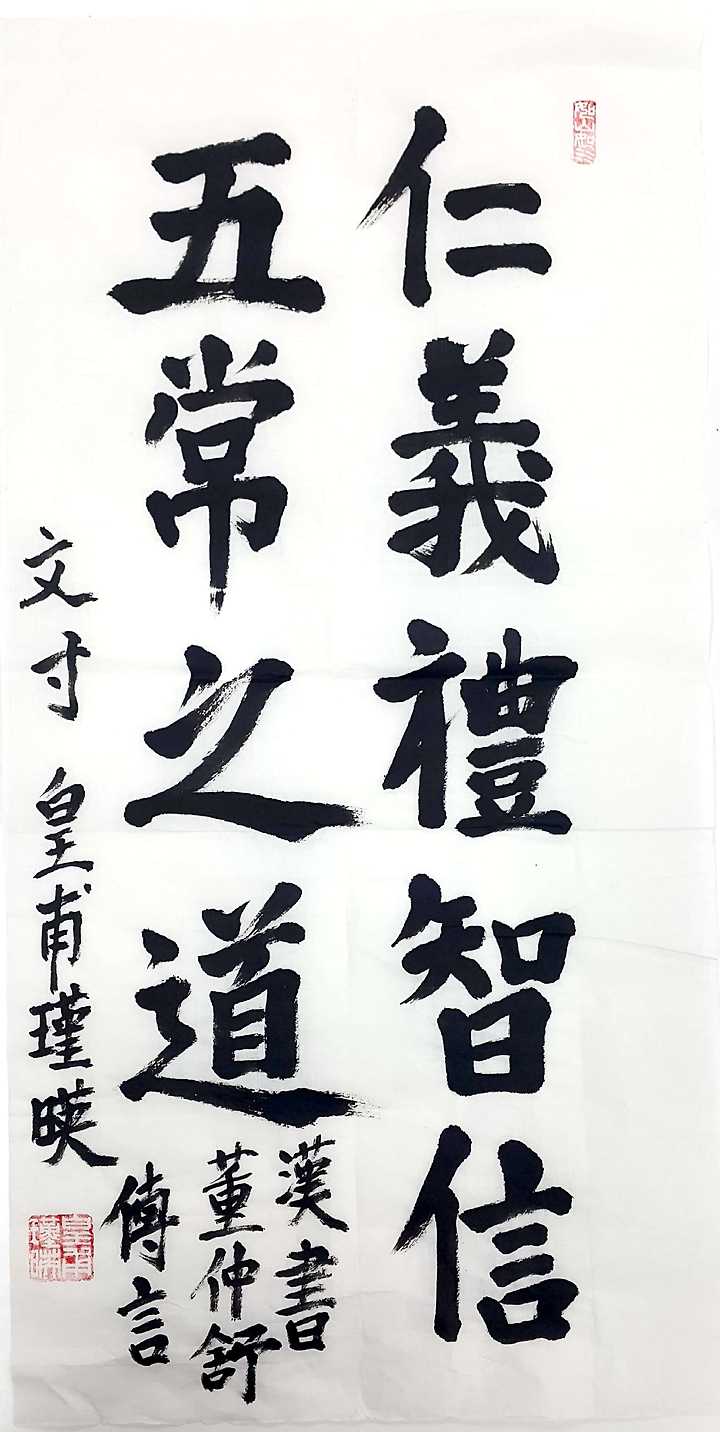 仁義禮智信
五常之道
漢書
董仲舒
傳言
文寸 皇甫瑾暎